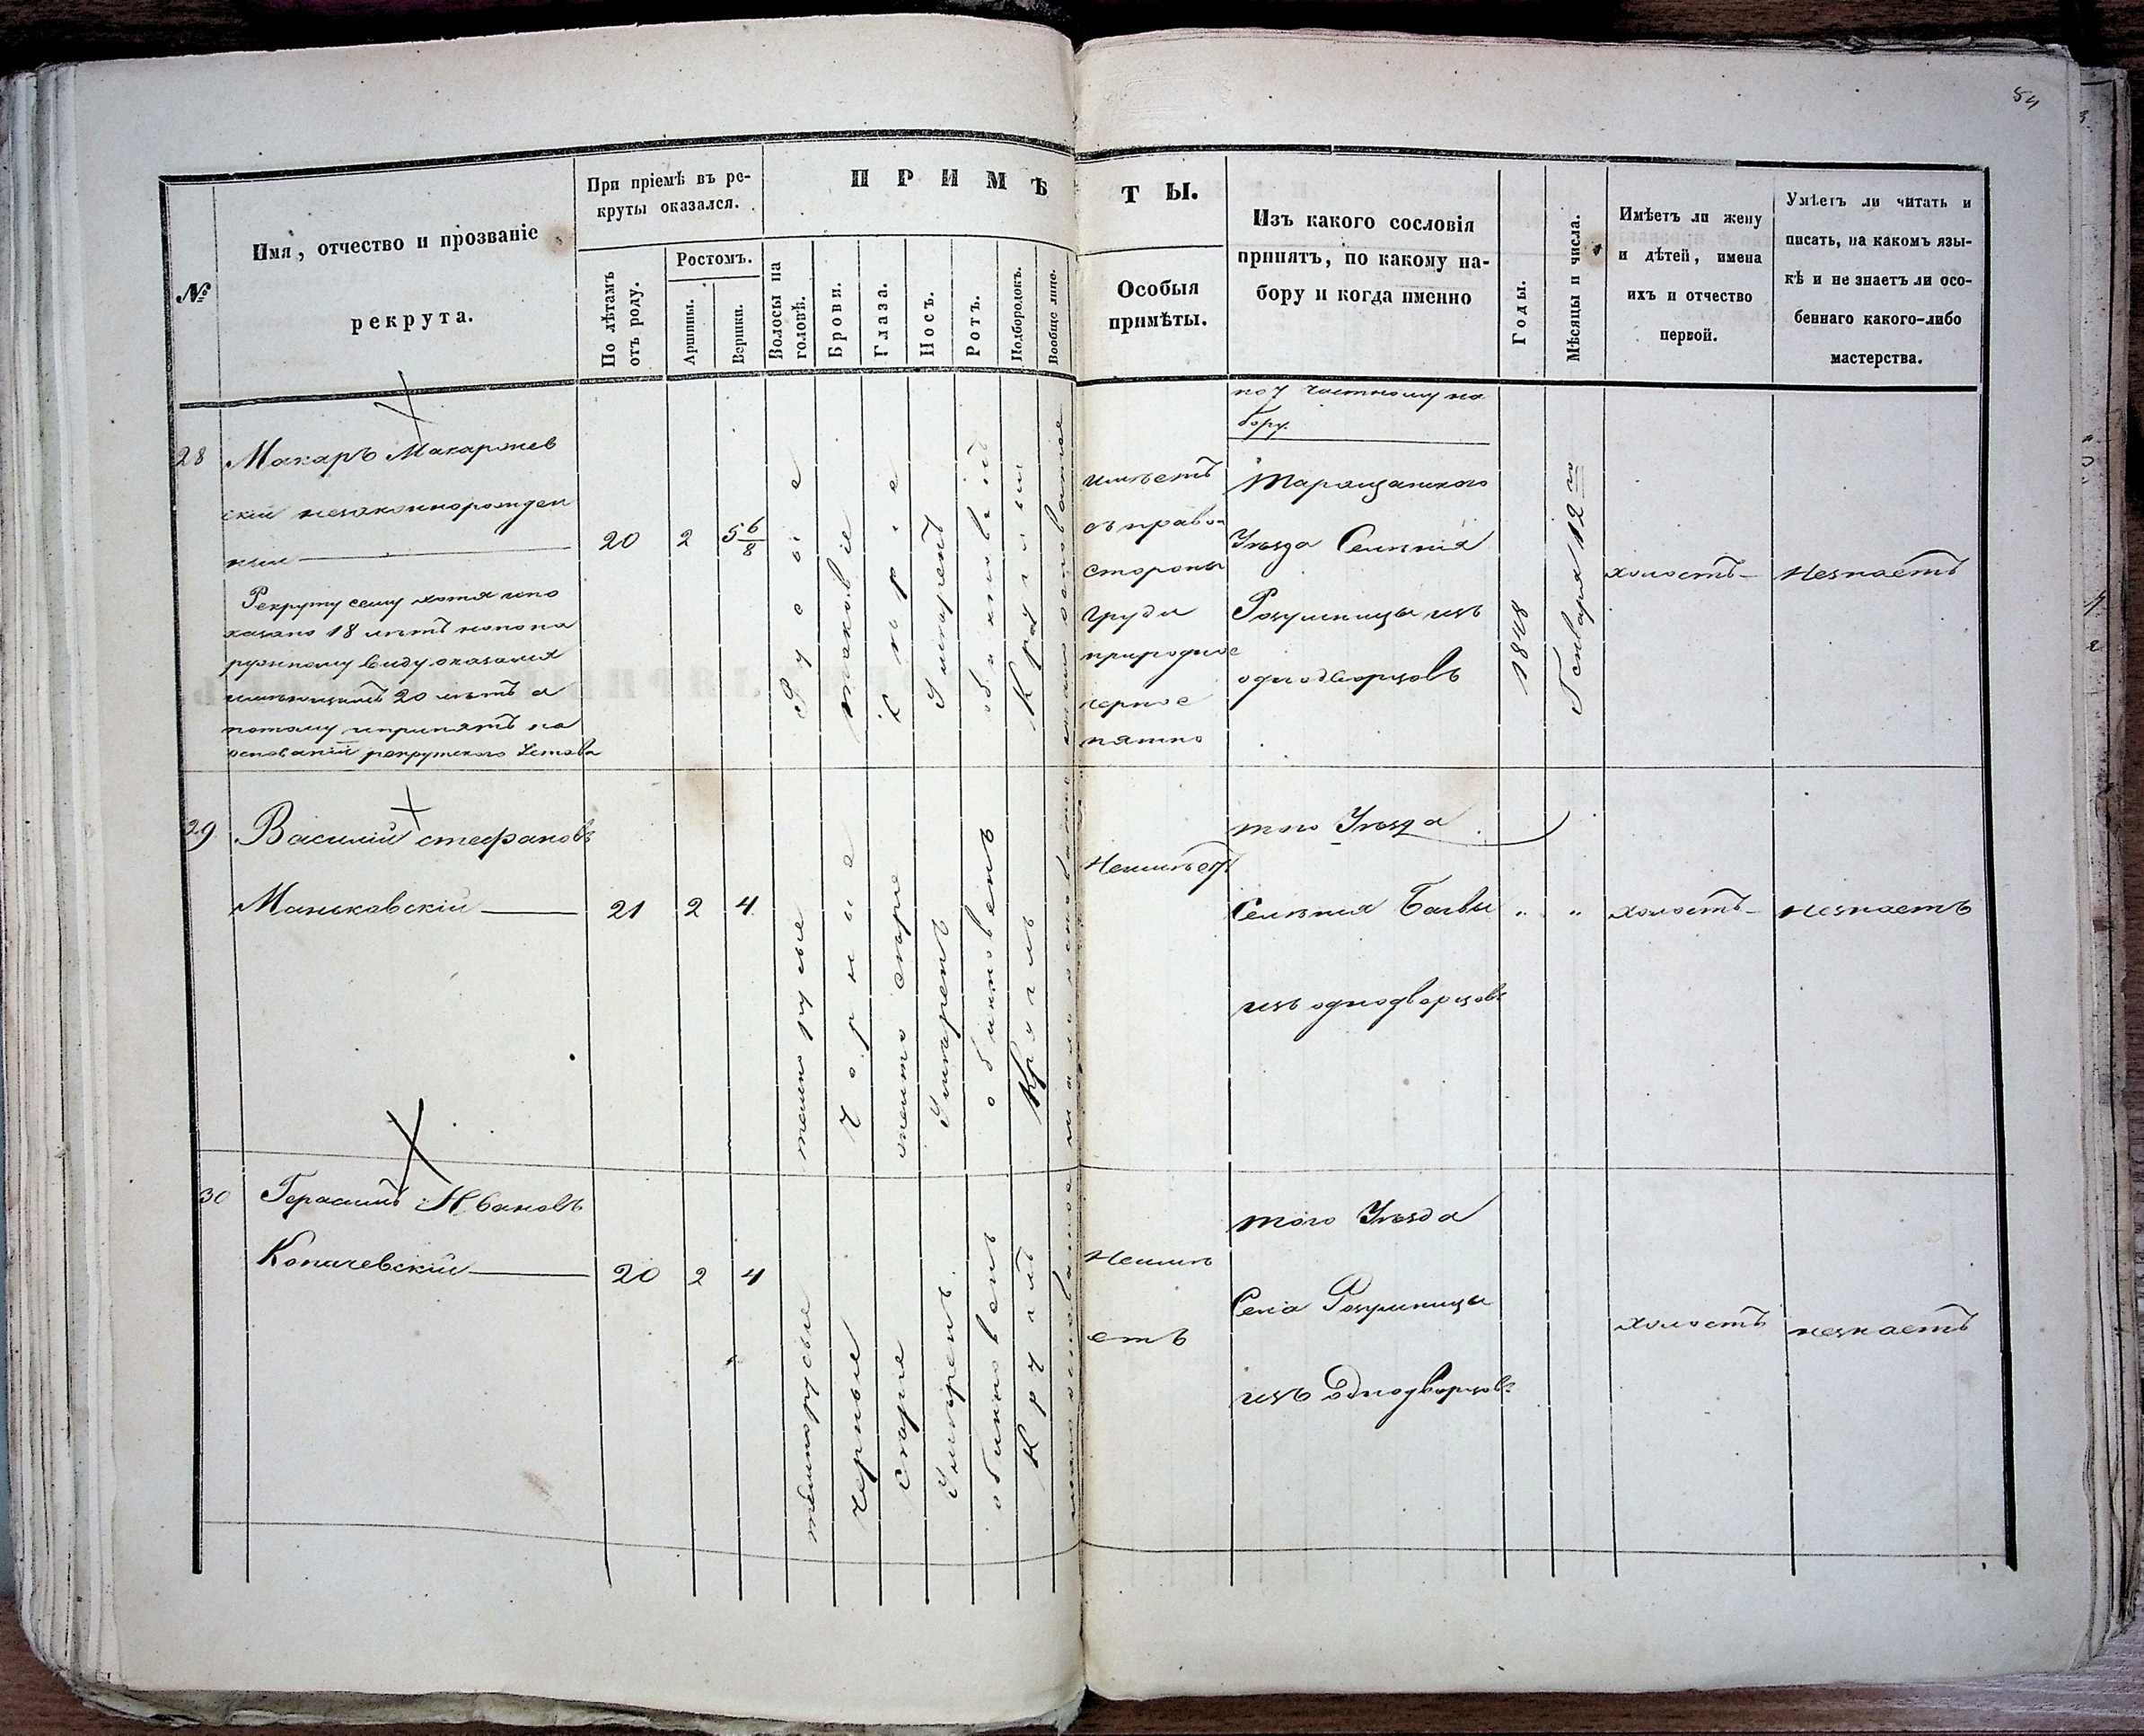 54
№
Имя, отчество и прозваніе
рекрута.
При пріемѣ въ ре-
круты оказался.
По лѣтамъ
отъ роду.
Ростомъ.
Аршины.
Вершки.
ПРИМѢТЫ.
Волосы на
головѣ.
Брови.
Глаза.
Носъ.
Ротъ.
Подбородокъ.
Вообще лице.
Особыя
примѣты.
Изъ какого сословія
принятъ, по какому на-
бору и когда именно
Годы.
Мѣсяцы и числа.
Имѣетъ ли жену
и дѣтей, имена
ихъ и отчество
первой.
Умѣетъ ли читать и
писать, на какомъ язы-
кѣ и не знаетъ ли осо-
беннаго какого-либо
мастерства.
по 7 частному на
бору.
28
Макаръ Макаржев
скій незаконнорожден
ный
Рекруту сему хотя и по
казано 18 лѣтъ но по на
ружному виду оказался
имѣющимъ 20 лѣтъ а
потому и принятъ на
основаніи рекрутского Устава
20
2
5 6/8
Русыє
таковіе
каріе
Умѣренъ
обикновенъ
Круглый
имѣетъ
съ правой
стороны
груди
природное
черное
пятно
Таращанского
Уѣзда Селенія
Розумницы изъ
однодворцовъ
1848
Генваря 12го
холостъ
Незнаетъ
29
Василій Стефановъ
Маньковскій
21
2
4
темнорусые
Чорные
желто сѣрые
Умѣренъ
обикновенъ
Круглъ
Неимѣетъ
того Уѣзда
Селенія Баквы
изъ однодворцовъ
" "
холостъ
незнаетъ
30
Герасимъ Ивановъ
Копачевскій
20
2
4
темнорусыи
черные
сѣрые
Умѣренъ
обикновенъ
Круглъ
Неимѣ
етъ
того Уѣзда
Села Розумницы
изъ Однодворцовъ
холостъ
незнаетъ